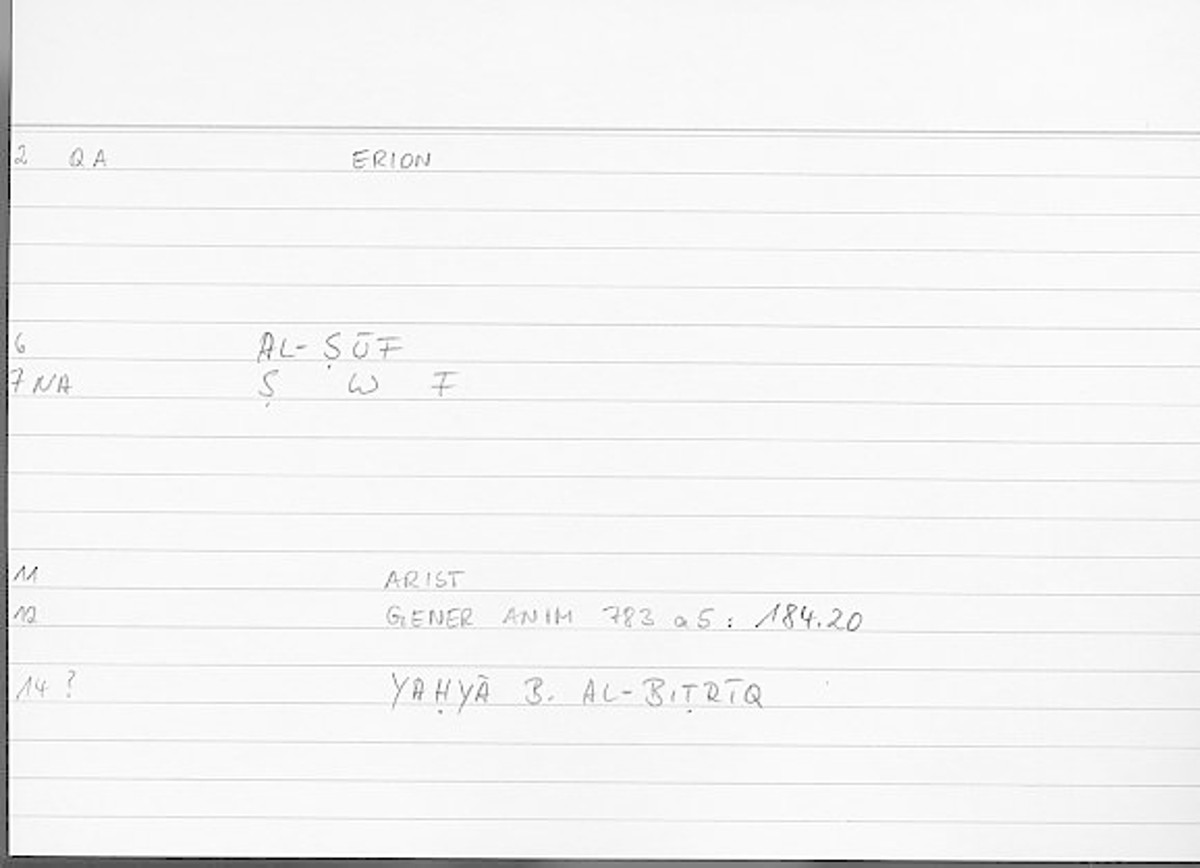 2 QA ERION
6 AL-ṢŪF
7 NA Ṣ W F
11 ARIST
12 GENER ANIM 783 a5 : 184.20
14 ? YAḤYĀ B. AL-BIṬRĪQ